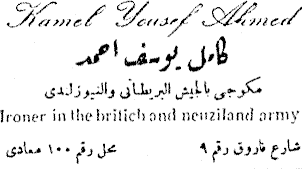 Kamel Yousef Ahmed
كامل يوسف احمد
مكوجى بالجيش البريطانى والنيوزلندى
Ironer in the british and neuziland army
شارع فاروق رقم ٩ محل رقم ١٠٠ معادى